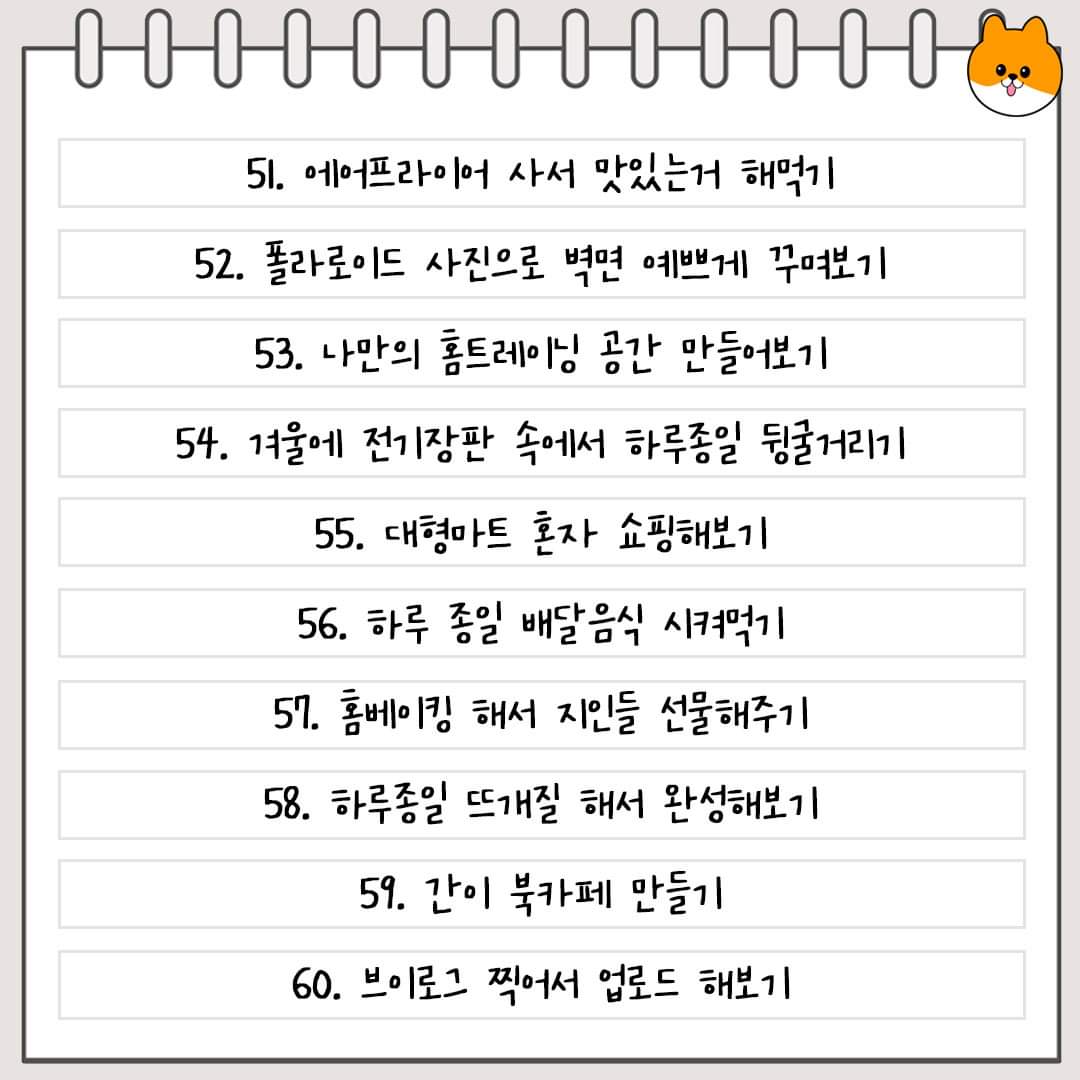 51. 에어프라이어 사서 맛있는거 해먹기
52. 폴라로이드 사진으로 벽면 예쁘게 꾸며보기
53. 나만의 홈트레이닝 공간 만들어보기
54. 겨울에 전기장판 속에서 하루종일 뒹굴거리기
55. 대형마트 혼자 쇼핑해보기
56. 하루 종일 배달음식 시켜먹기
57. 홈베이킹 해서 지인들 선물해주기
58. 하루종일 뜨개질 해서 완성해보기
59. 간이 북카페 만들기
60. 브이로그 찍어서 업로드 해보기